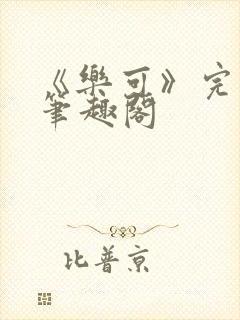 《樂可》完
筆趣閣
比普京